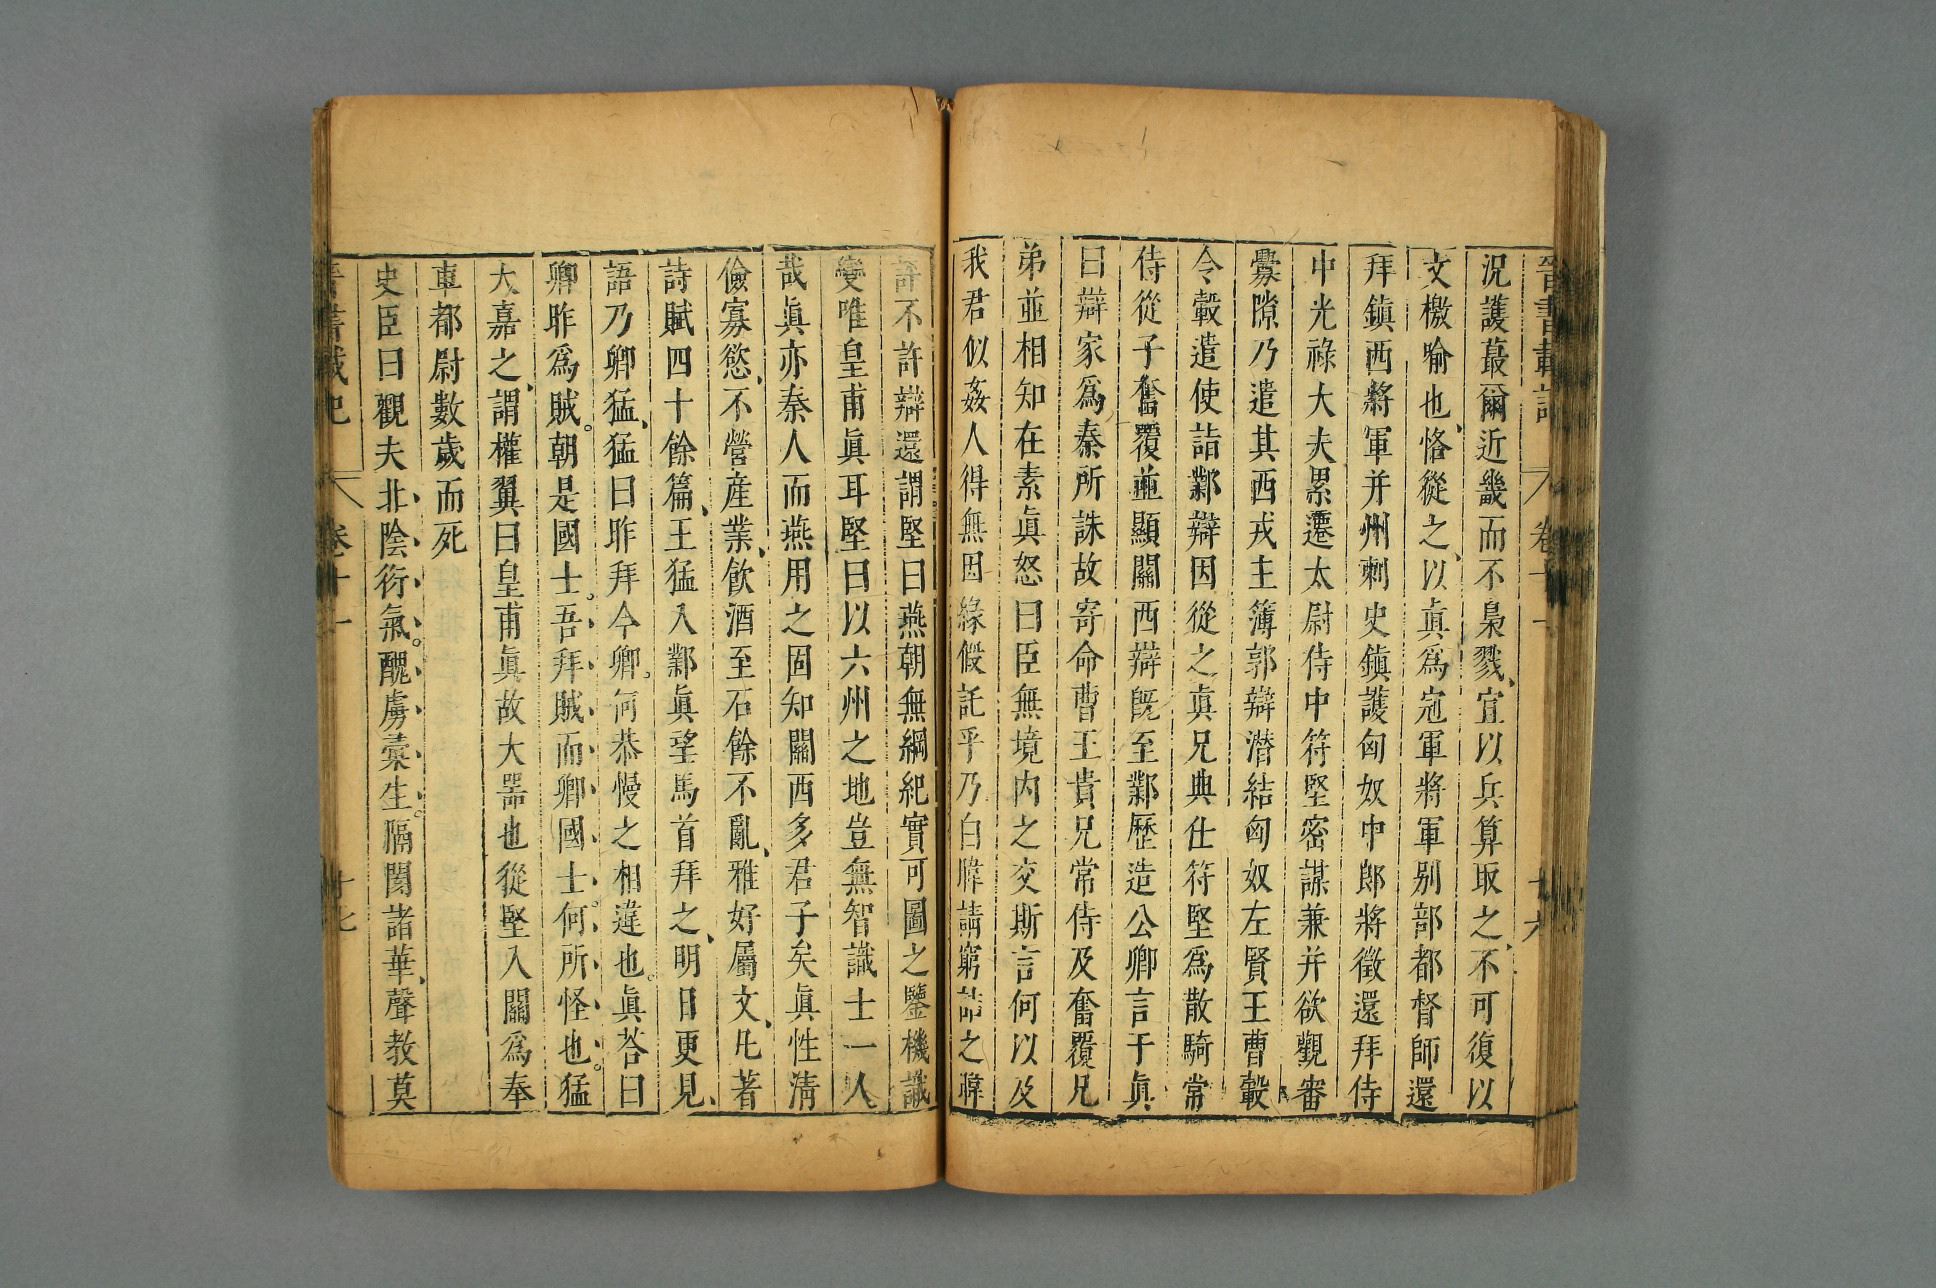 晉書載記 卷十一 十六
況護蕞爾近畿而不梟戮宜以兵算取之不可復以
文檄喻也恪從之以眞爲冦軍將軍别部都督師還
拜鎮西將軍并州刺史鎮護匈奴中郎將徵還拜侍
中光祿大夫累遷太尉侍中符堅密謀兼并欲觀審
釁隙乃遣其西戎主簿郭辯潛結匈奴左賢王曹轂
令轂遣使詣鄴辯因從之眞兄典仕符堅爲散騎常
侍從子奮覆並顯關西辯旣至鄴歷造公卿言于眞
曰辯家爲秦所誅故寄命曹王貴兄常侍及奮覆兄
弟並相知在素眞怒曰臣無境内之交斯言何以及
我君似姦人得無因緣假託乎乃白暐請窮詰之暐
評不許辯還謂堅曰燕朝無綱紀實可圖之鑒機識
變唯皇甫眞耳堅曰以六州之地豈無智識士一人
哉眞亦秦人而燕用之固知關西多君子矣眞性淸
儉寡慾、不營產業、飮酒至石餘不亂、雅好屬文、凡著
詩賦四十餘篇、王猛入鄴眞望馬首拜之、明日更見、
語乃卿猛、猛曰昨拜今卿。何恭慢之相違也。眞荅曰
卿昨爲賊。朝是國士。吾拜賊而卿國士。何所怪也。猛
大嘉之、謂權翼曰皇甫眞故大器也從堅入關爲奉
車都尉數歲而死
史臣曰觀夫北陰衍氣。醜虜彙生。隔閡諸華、聲教莫
晉書載記 卷十一 十七